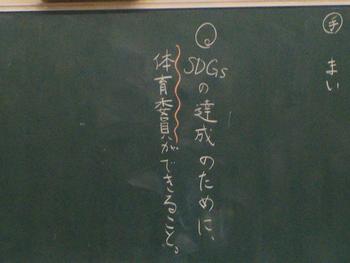 ㋢
まい
SDGsの達成のために、
体育委員ができること。